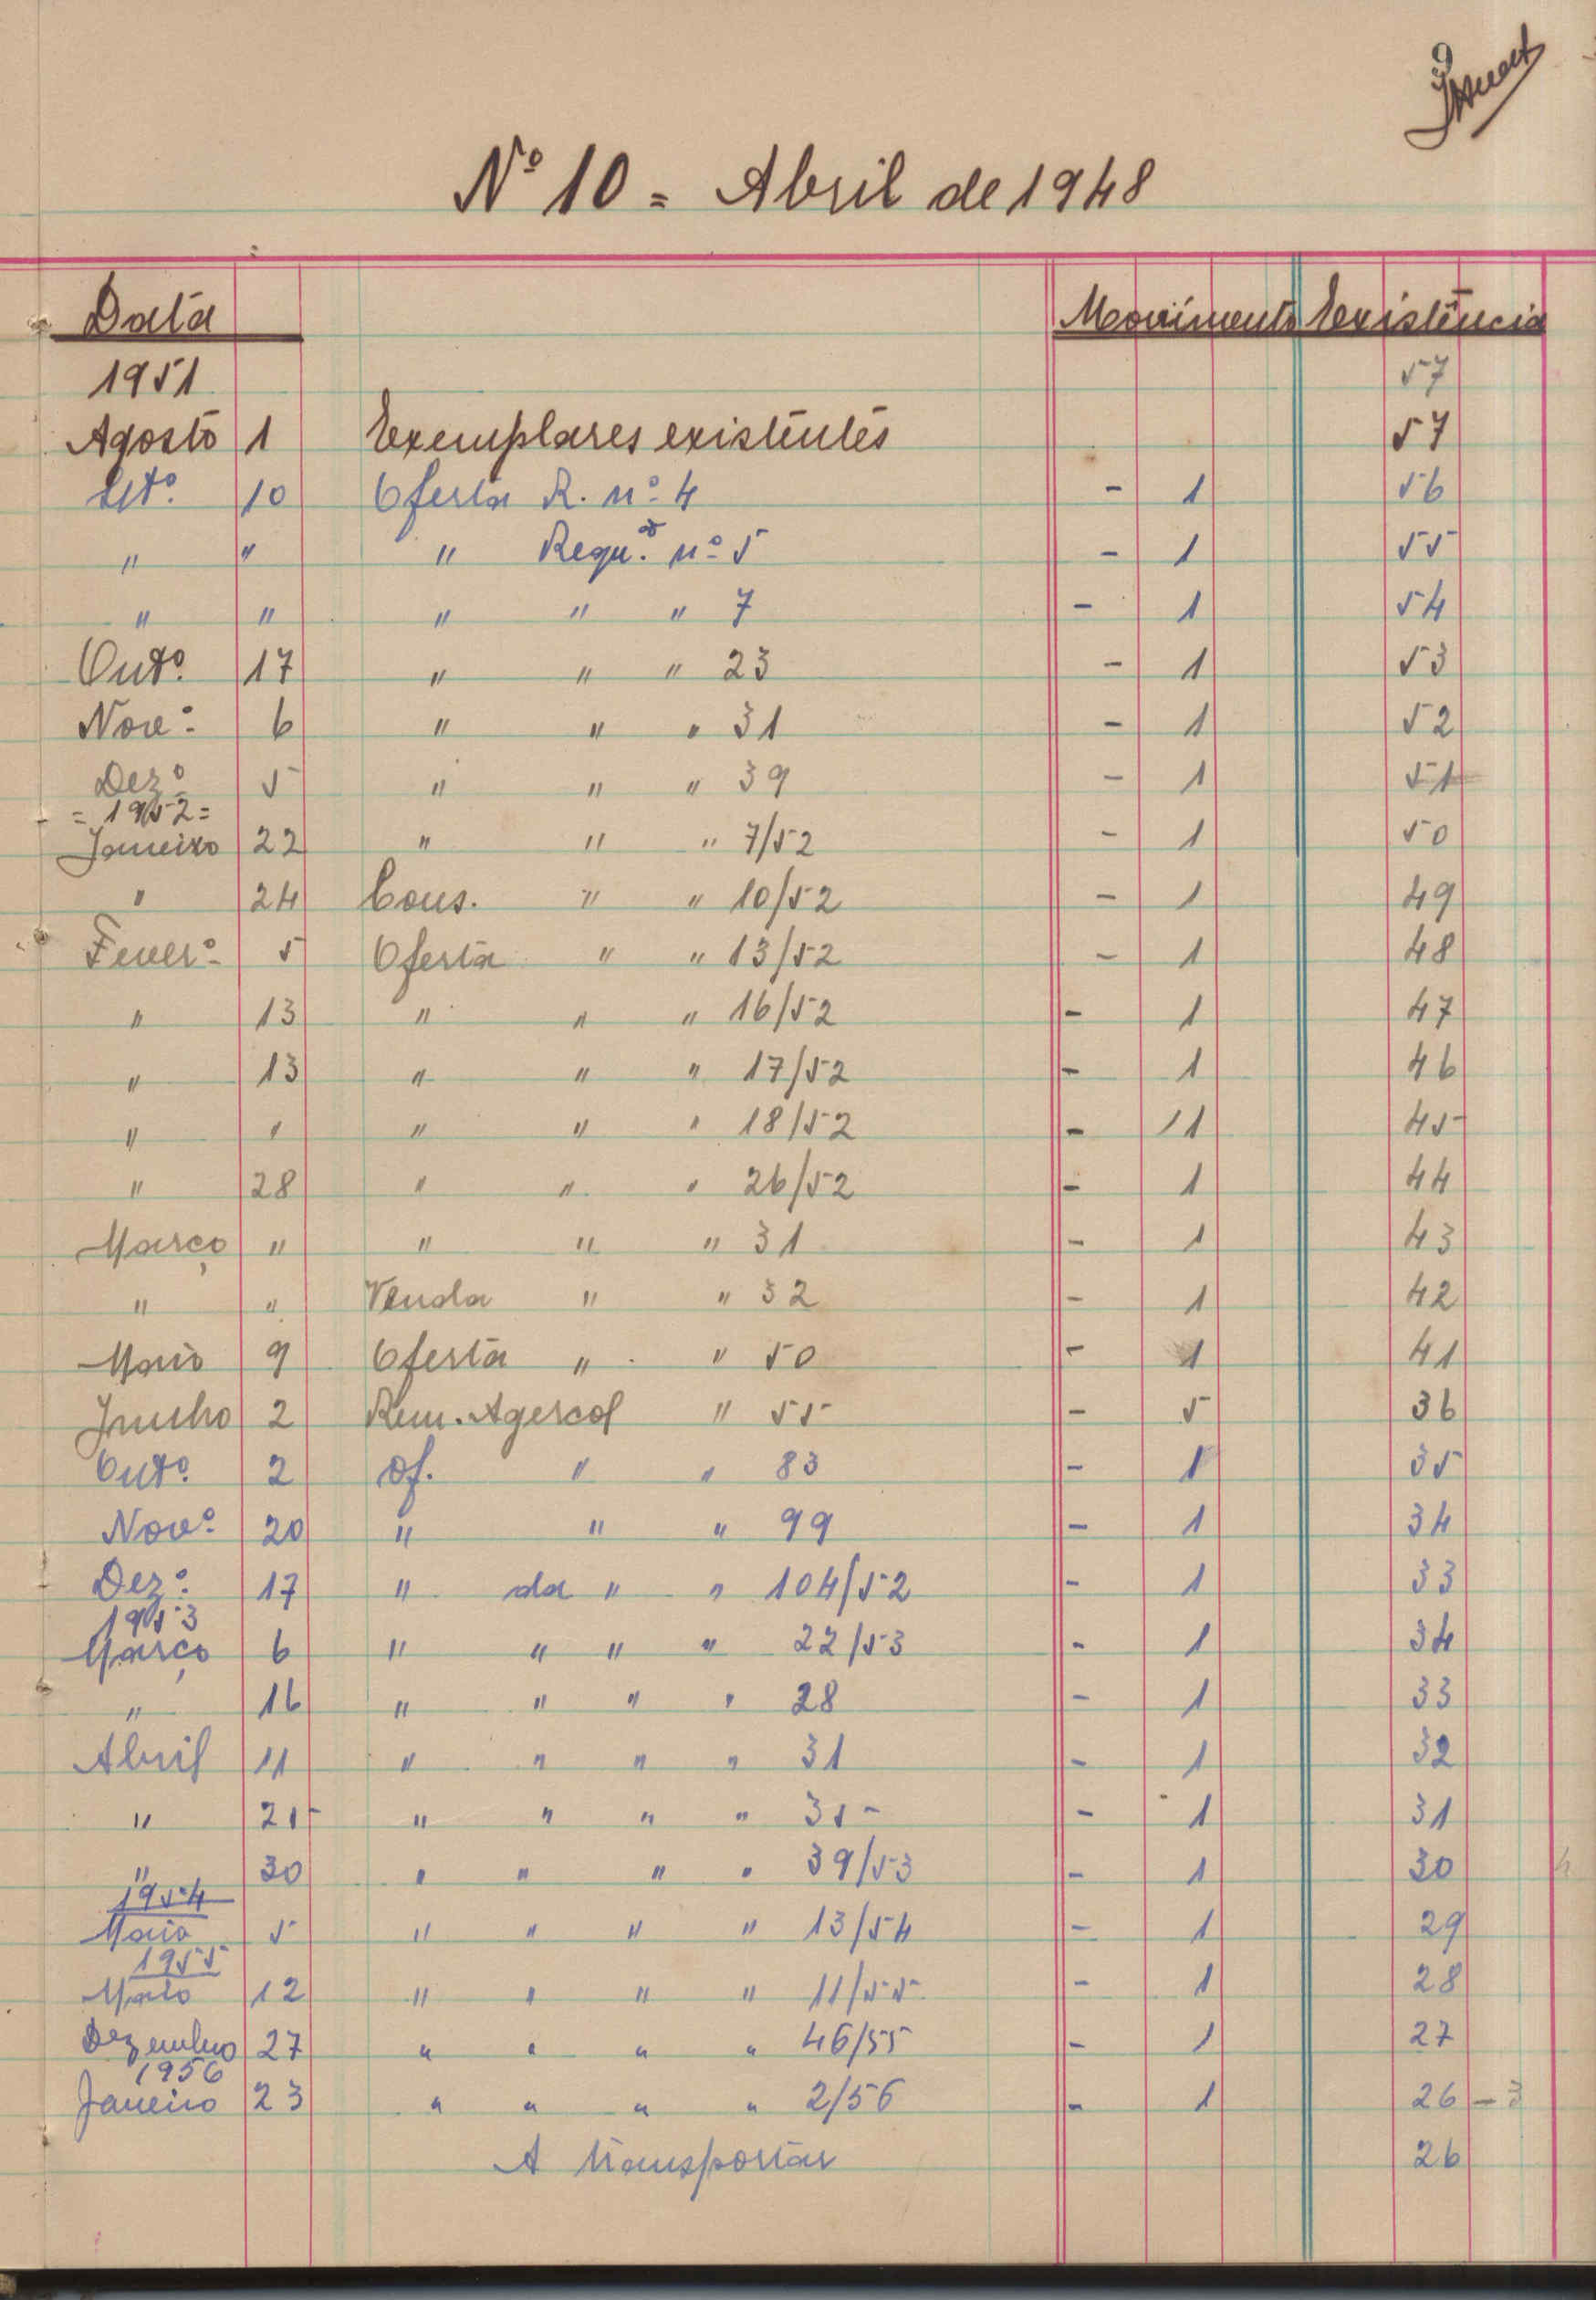 9
Nº 10 = Abril de 1948
Data Movimento Existência
1951 57
Agosto 1 Exemplares existentes 57
Setº. 10 Oferta R. nº 4 - 1 56
" " " Requ. nº 5 - 1 55
" " " " " 7 - 1 54
Outº. 17 " " " 23 - 1 53
Novº 6 " " " 31 - 1 52
Dezº 5 " " " 39 - 1 51
= 1952 =
Janeiro 22 " " " 7/52 - 1 50
" 24 Cons. " " 10/52 - 1 49
Feverº 5 Oferta " " 13/52 - 1 48
" 13 " " " 16/52 - 1 47
" 13 " " " 17/52 - 1 46
" " " " " 18/52 - 11 45
" 28 " " " 26/52 - 1 44
Março " " " " 31 - 1 43
" " Venda " " 32 - 1 42
Maio 9 Oferta " " 50 - 1 41
Junho 2 Rem. Agercol " 55 - 5 36
Outº. 2 Of. " " 83 - 1 35
Novº 20 " " " 99 - 1 34
Dezº 17 " da " " 104/52 - 1 33
1953
Março 6 " " " " 22/53 - 1 34
" 16 " " " " 28 - 1 33
Abril 11 " " " " 31 - 1 32
" 25 " " " " 35 - 1 31
" 30 " " " " 39/53 - 1 30
1954
Maio 5 " " " " 13/54 - 1 29
1955
Maio 12 " " " " 11/55 - 1 28
Dezembro 27 " " " " 46/55 - 1 27
1956
Janeiro 23 " " " " 2/56 - 1 26 - 3
A transportar 26